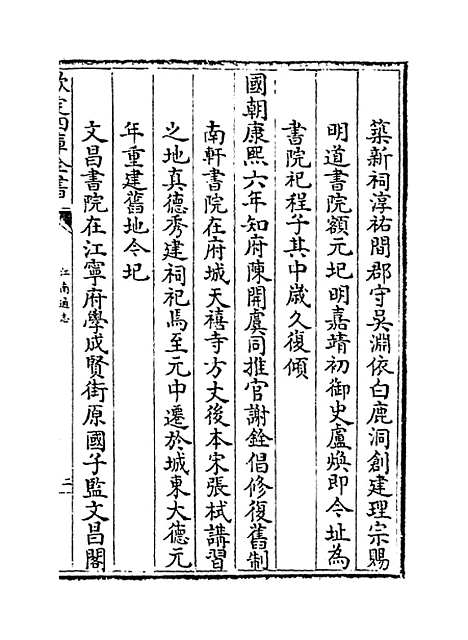 築新祠淳祐間郡守吳淵依白鹿洞創建理宗賜
明道書院額元圮明嘉靖初御史盧煥即今址為
書院祀程子其中嵗久復傾
國朝康熙六年知府陳開虞同推官謝銓倡修復舊制
南軒書院在府城天禧寺方丈後本宋張栻講習
之地真德秀建祠祀焉至元中遷於城東大德元
年重建舊地今圮
文昌書院在江寧府學成賢街原國子監文昌閣
欽定四庫全書
江南通志
二